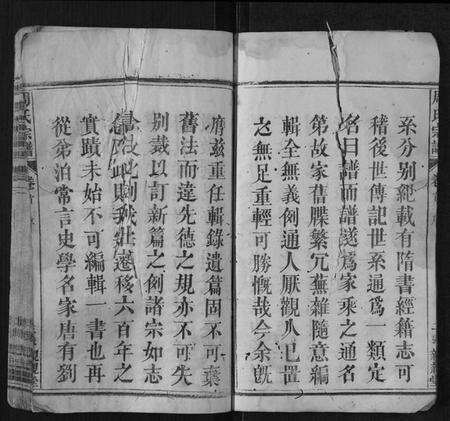 周氏宗譜
卷首
系分別紀載有隋書經籍志可
稽後世傳記世系通爲一類定
名曰譜而譜遂爲家乘之通名
第故家舊牒繁冗蕪雜隨意編
輯全無義例通人厭觀久已置
之無足重輕可勝慨哉今余旣
膺兹重任輯錄遺篇固不可棄
舊法而違先德之規亦不可失
別裁以訂新篇之例諸宗如志
遷移六百年之
實蹟未始不可編輯一書也再
從弟泊常言史學名家唐有劉